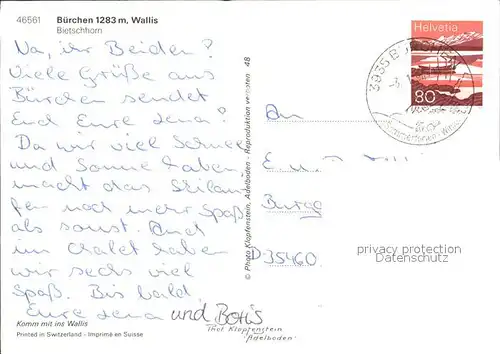 46561 Bürchen 1283 m, Wallis
Bietschhorn
Na, ihr Beiden?
Viele Grüße aus
Bürchen sendet
Euch Eure Lena!
Da wir viel Schnee
und Sonne haben,
macht das Skilau-
fen noch mehr Spaß
als sonst. Auch
im Chalet haben
wir sechs viel
Spaß. Bis bald,
Eure Lena und Boris
Komm mit ins Wallis
Printed in Switzerland - Imprimé en Suisse
© Photo Klopfenstein, Adelboden - Reproduktion verboten 48
Helvetia
80
3935 BÜRCHEN
An
E. u.
D-35460
privacy protection
Datenschutz
Phot Klopfenstein
Adelboden